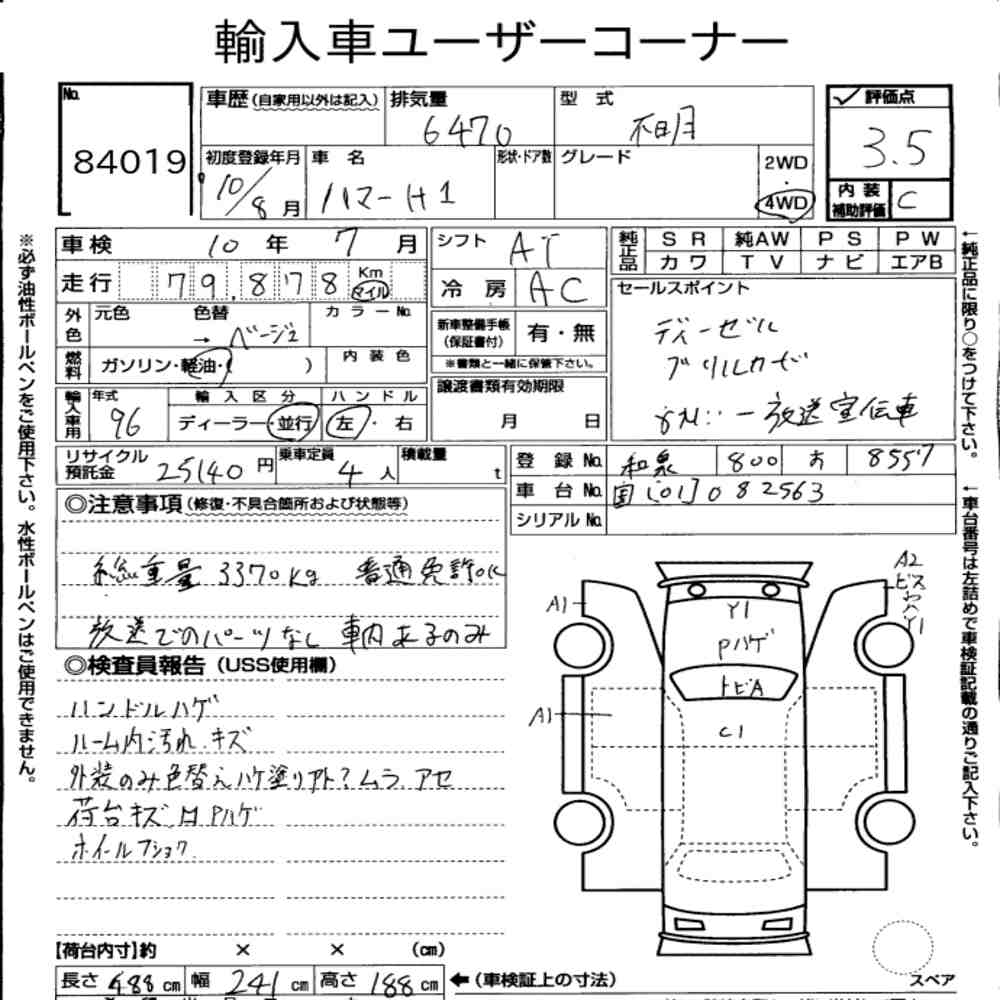 輸入車ユーザーコーナー
No. 84019
車歴(自家用以外は記入) 排気量 6470 型式 不明 ✓評価点 3.5
初度登録年月 10/8月 車名 ハマーH1 形状・ドア数 グレード 2WD・4WD 内装補助評価 C
車検 10年 7月 シフト AT 純正品 SR 純AW PS PW
カワ TV ナビ エアB
走行 79.878 Km マイル 冷房 AC
外色 元色 色替 → ベージュ カラーNo. 新車整備手帳(保証書付) 有・無
※書類と一緒に保管下さい。
セールスポイント
ディーゼル
グリルガード
放送宣伝車
燃料 ガソリン・軽油・( ) 内装色
譲渡書類有効期限 月 日
輸入車用 年式 96 輸入区分 ディーラー・並行 ハンドル 左・右
リサイクル預託金 25140円 乗車定員 4人 積載量 t
登録No. 和泉 800 お 8557
車台No. 国[01]082563
シリアルNo.
◎注意事項(修復・不具合箇所および状態等)
総重量 3370kg 普通免許OK
放送でのパーツなし 車内あるのみ
◎検査員報告(USS使用欄)
ハンドルハゲ
ルーム内汚れ、キズ
外装のみ色替えハケ塗りアト?ムラ、アセ
荷台キズ凹Pハゲ
ホイールフショク
A1
A1
A2
ビス
Y1
Y1
Pハゲ
トビA
C1
【荷台内寸】約 × × (cm)
長さ 488cm 幅 241cm 高さ 188cm ←(車検証上の寸法)
スペア
※必ず油性ボールペンをご使用下さい。水性ボールペンはご使用できません。
←純正品に限り○をつけて下さい。
←車台番号は左詰めで車検証記載の通りご記入下さい。